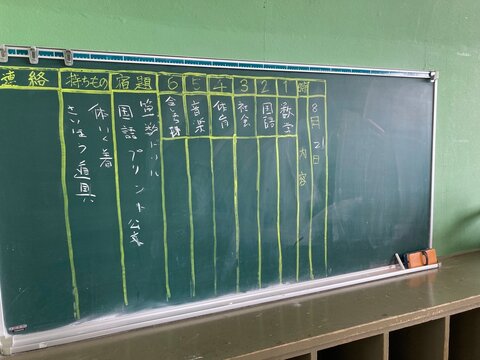 8月21日
時間
内容
1
数学
2
国語
3
社会
4
体育
5
音楽
6
宿題
算数ドリル
国語プリント
持ちもの
体いく着
さいほう道具
連絡